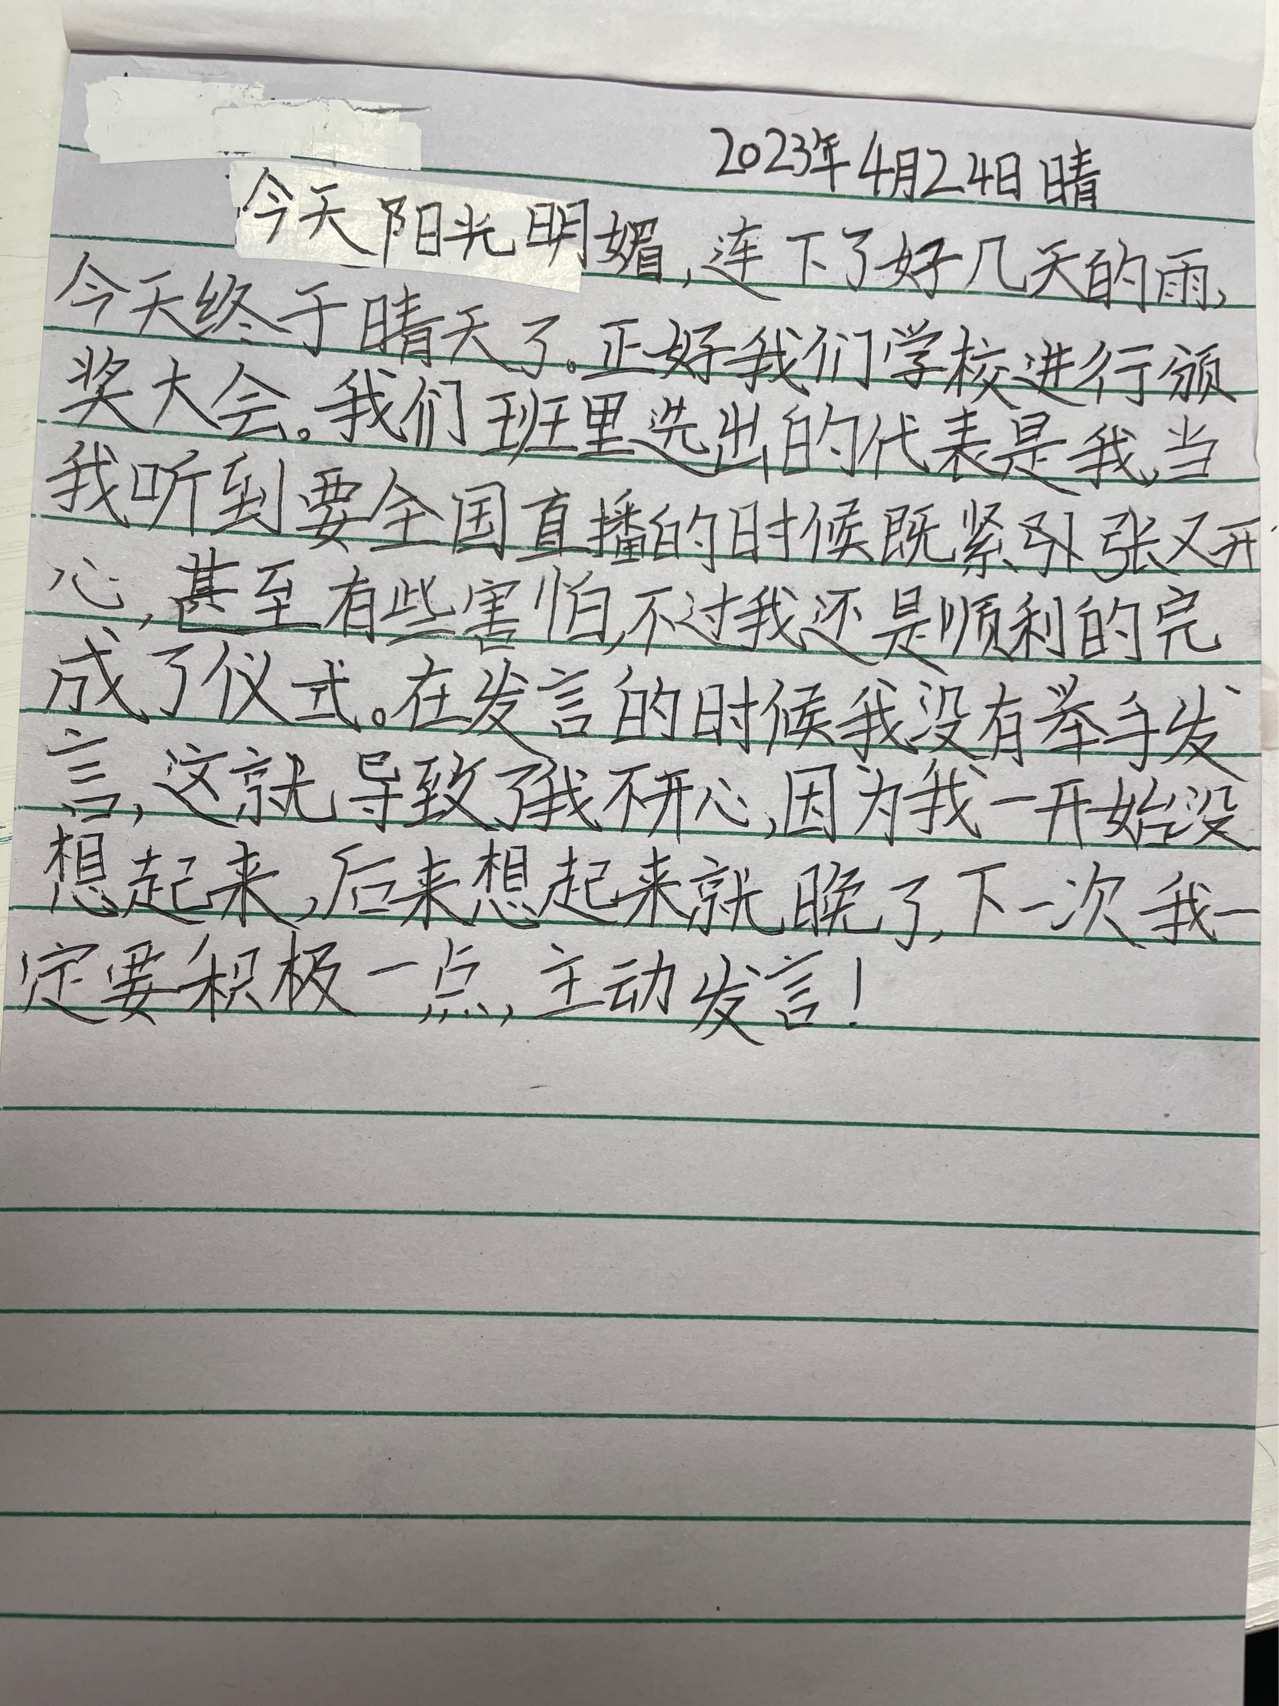 2023年4月24日 晴
今天阳光明媚,连下了好几天的雨,
今天终于晴天了。正好我们学校进行颁
奖大会。我们班里选出的代表是我,当
我听到要全国直播的时候既紧引张又开
心,甚至有些害怕,不过我还是顺利的完
成了仪式。在发言的时候我没有举手发
言,这就导致了我不开心,因为我一开始没
想起来,后来想起来就晚了,下一次我一
定要积极一点,主动发言!